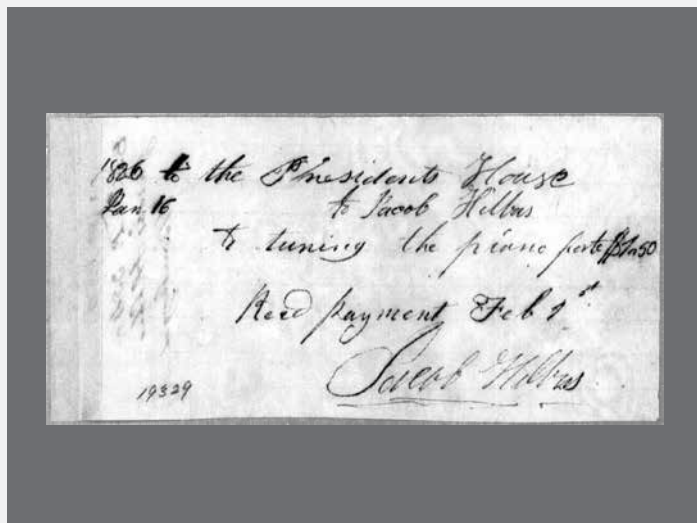 1826 to the Presidents House
Jan 16 to Jacob Hilbus
To tuning the piano forte $1.50
Recd payment Feb 1st
Jacob Hilbus
19329